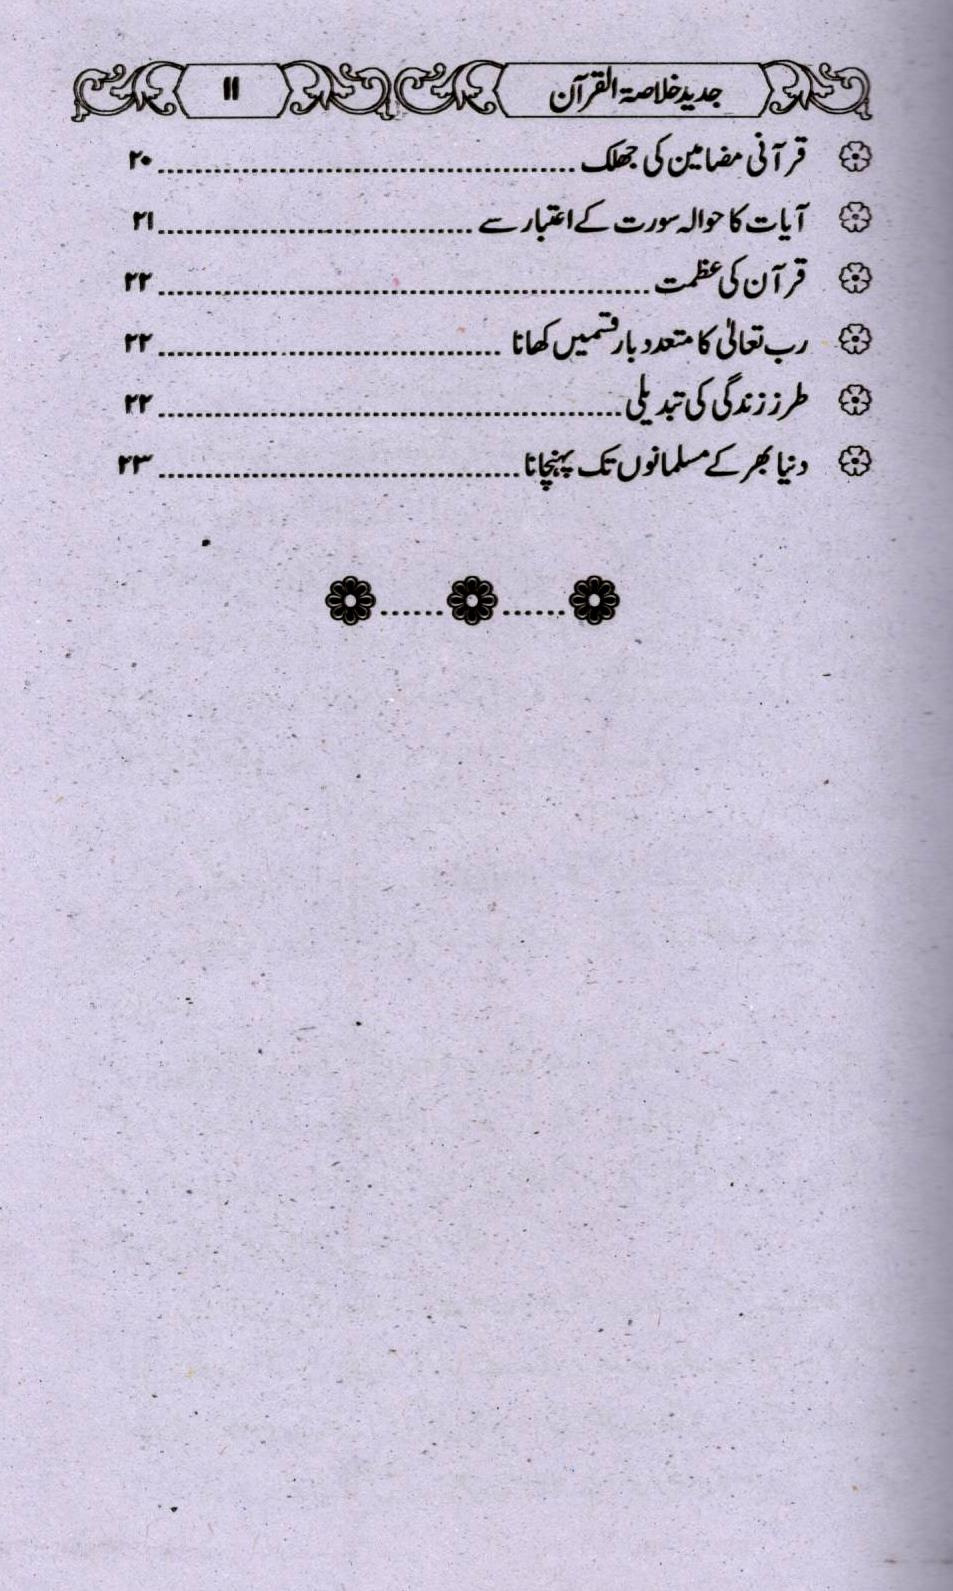 جدید خلاصۃ القرآن ۱۱
قرآنی مضامین کی جھلک ........ ۲۰
آیات کا حوالہ سورت کے اعتبار سے ........ ۲۱
قرآن کی عظمت ........ ۲۲
رب تعالیٰ کا متعدد بار قسمیں کھانا ........ ۲۲
طرز زندگی کی تبدیلی ........ ۲۲
دنیا بھر کے مسلمانوں تک پہنچانا ........ ۲۳